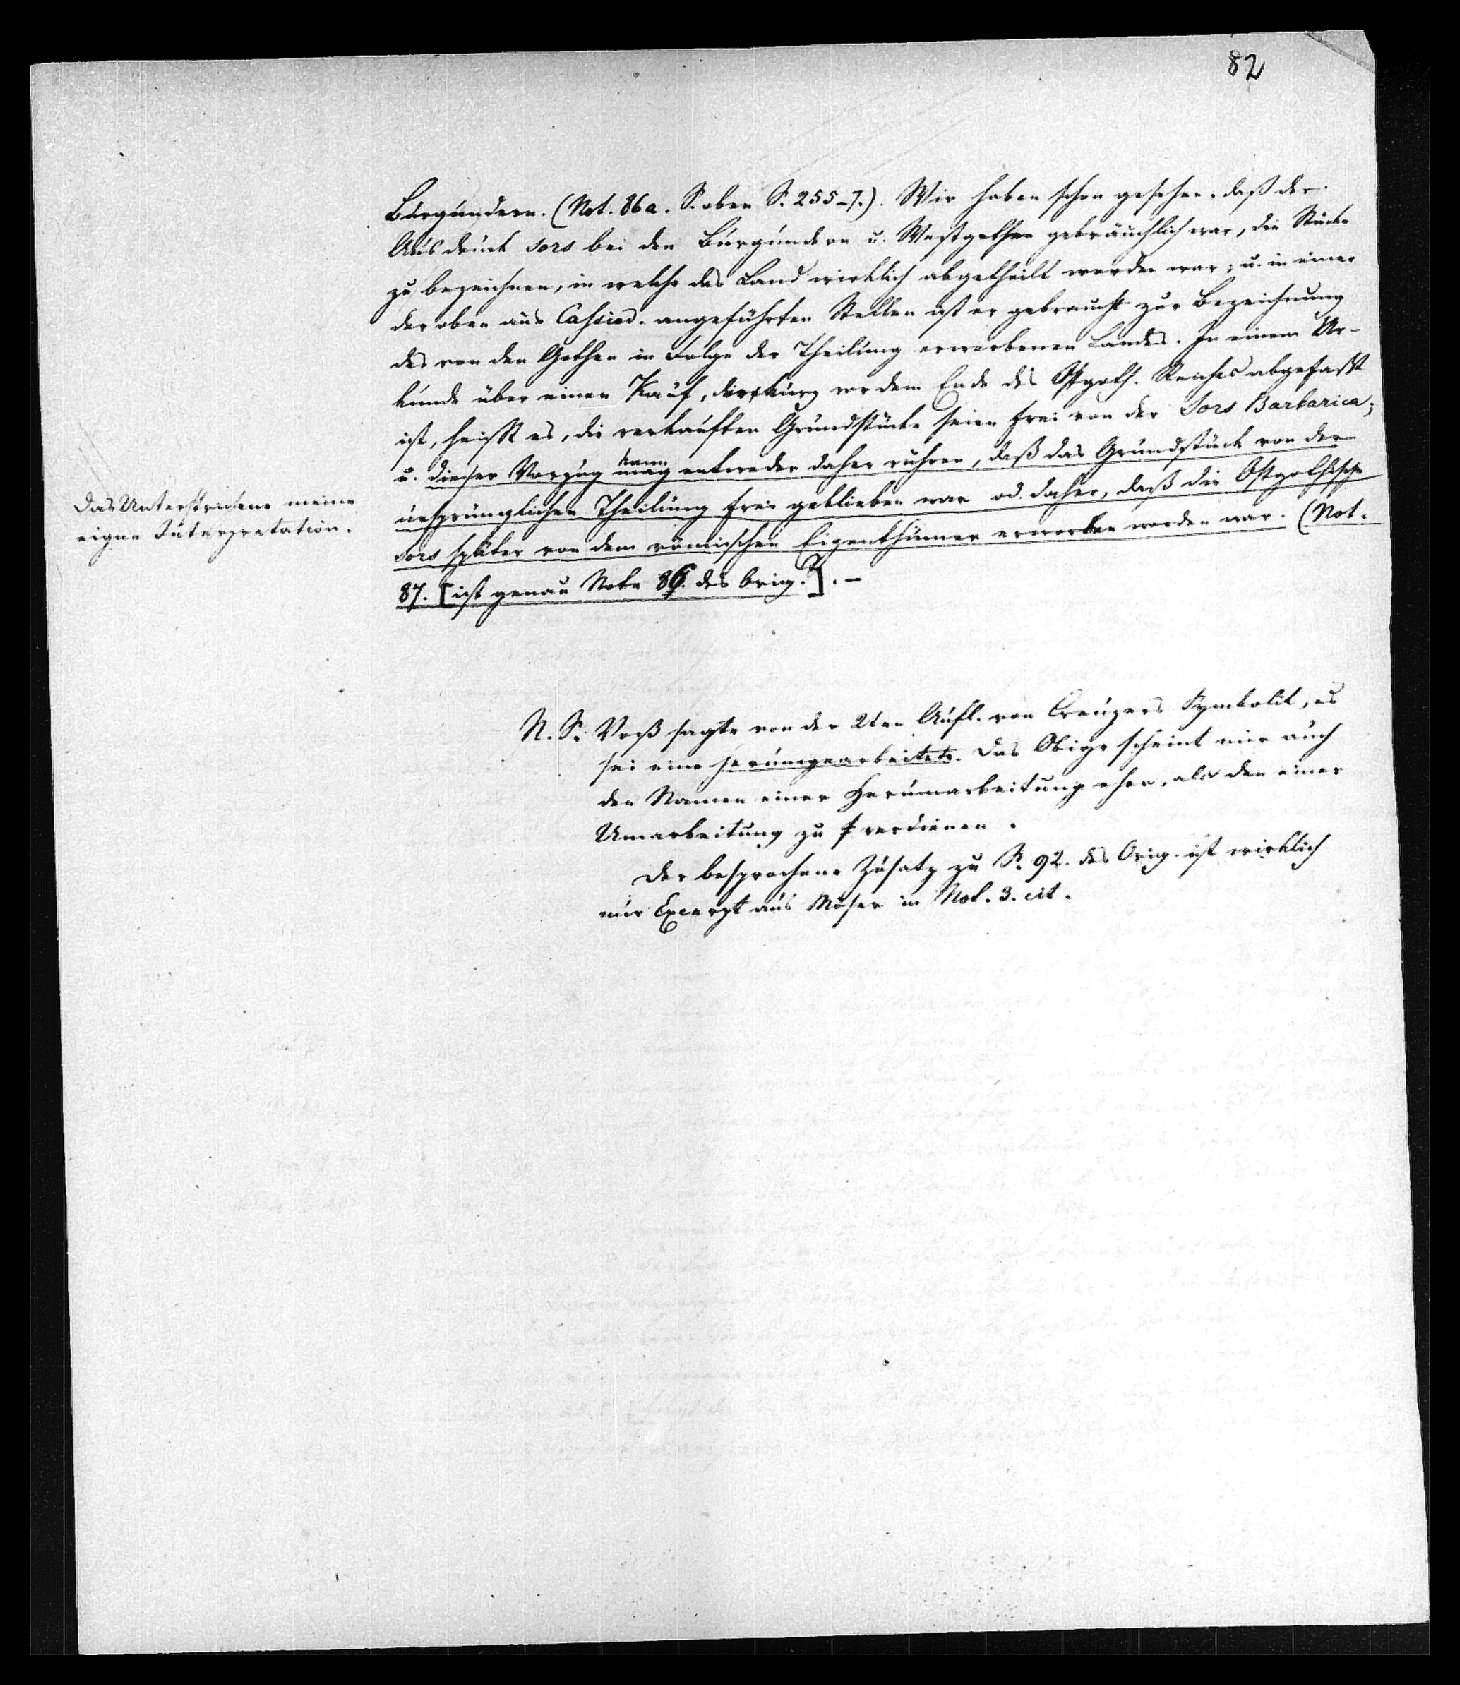 82
Burgundern. (Not. 86a. S. oben S. 255-7.). Wir haben schon gesehen, daß der
Ausdruck sors bei den Burgundern u. Westgothen gebräuchlich war, die Stücke
zu bezeichnen, in welche das Land wirklich abgetheilt worden war; u. in einer
der oben aus Cassiod. angeführten Stellen ist er gebraucht zur Bezeichnung
des von den Gothen in Folge der Theilung erworbenen Landes. In einem Ur-
kunde über einen Kauf, kurz vor dem Ende des Ostgoth. Reiches abgefaßt
ist, heißt es, die verkauften Grundstücke seien frei von der Sors Barbarica;
u. dieser Vorzug kann entweder daher rühren, daß das Grundstück von der
ursprünglichen Theilung frei geblieben war od. daher, daß die Ostgothische
Sors später von dem römischen Eigenthümer erworben worden war. (Not.
87. [ist genau Note 86. des Orig.?]. –
Das Unterstrichene meine
eigne Interpretation.
N. S. Voß sagte von der 2ten Aufl. von Creuzers Symbolik, es
sei eine herumgearbeitete. Das Obige scheint mir auch
den Namen einer Herumarbeitung eher, als den einer
Umarbeitung zu verdienen.
Der besprochene Zusatz zu S. 92. des Orig. ist wirklich
nur Excerpt aus Möser in Not. 3. cit.